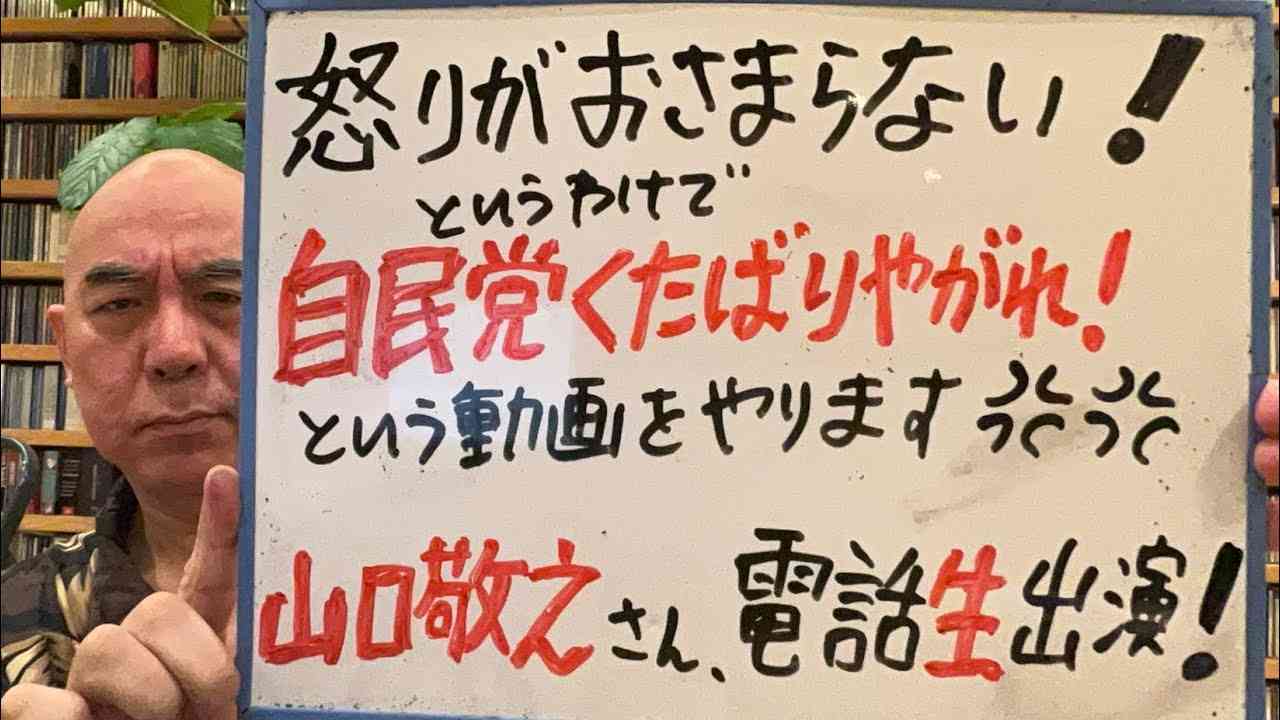 怒りがおさまらない！
というわけで
自民党くたばりやがれ！
という動画をやります💢💢
山口敬之さん、電話生出演！